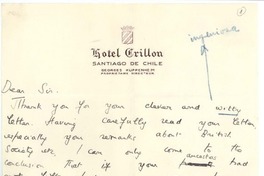 1
ingeniosa
Hotel Crillon
SANTIAGO DE CHILE
GEORGES KUPPENHEIM
PROPRIETAIRE DIRECTEUR
Dear Sir:
Thank you for your clever and witty
letter. Having carefully read your letter,
especially your remarks about British
Society etc, I can only come to the
ancestors
conclusion that if your had